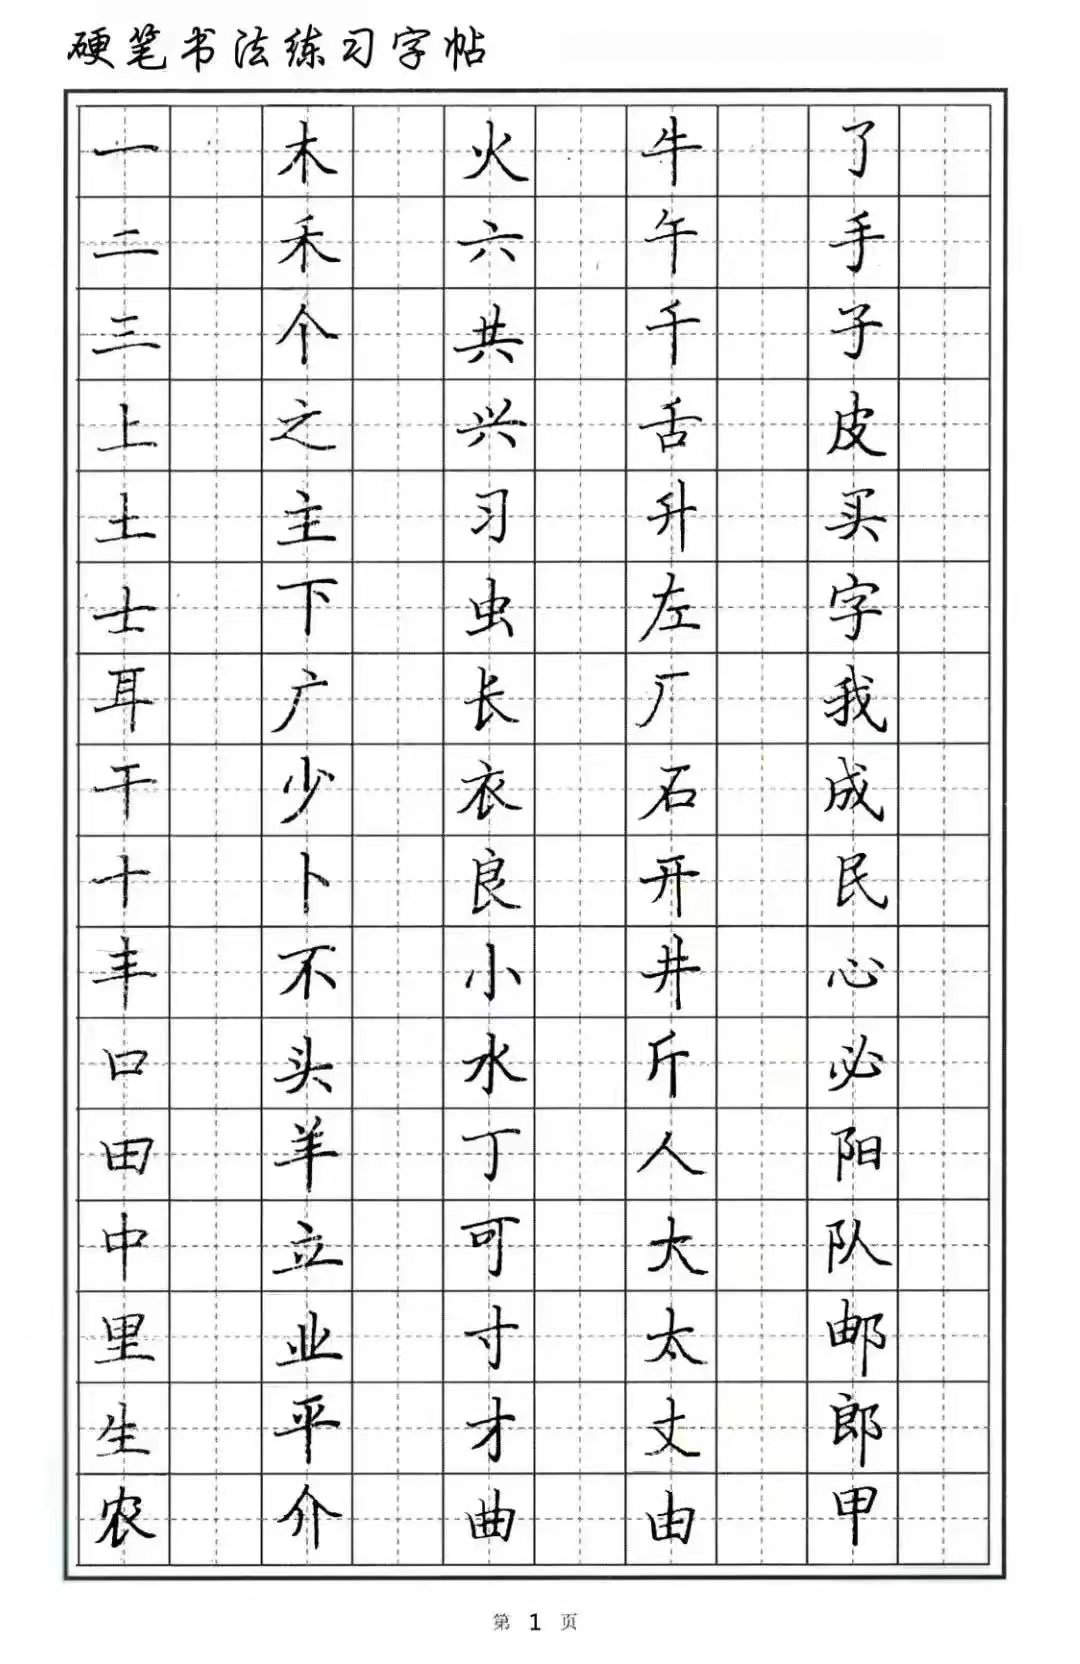 硬笔书法练习字帖
一 木 火 牛 了
二 禾 六 午 手
三 个 共 千 子
上 之 兴 舌 皮
土 主 习 升 买
士 下 虫 左 字
耳 广 长 厂 我
干 少 衣 石 成
十 卜 良 开 民
丰 不 小 井 心
口 头 水 斤 必
田 羊 丁 人 阳
中 立 可 大 队
里 业 寸 太 邮
生 平 才 丈 郎
农 介 曲 由 甲
第 1 页